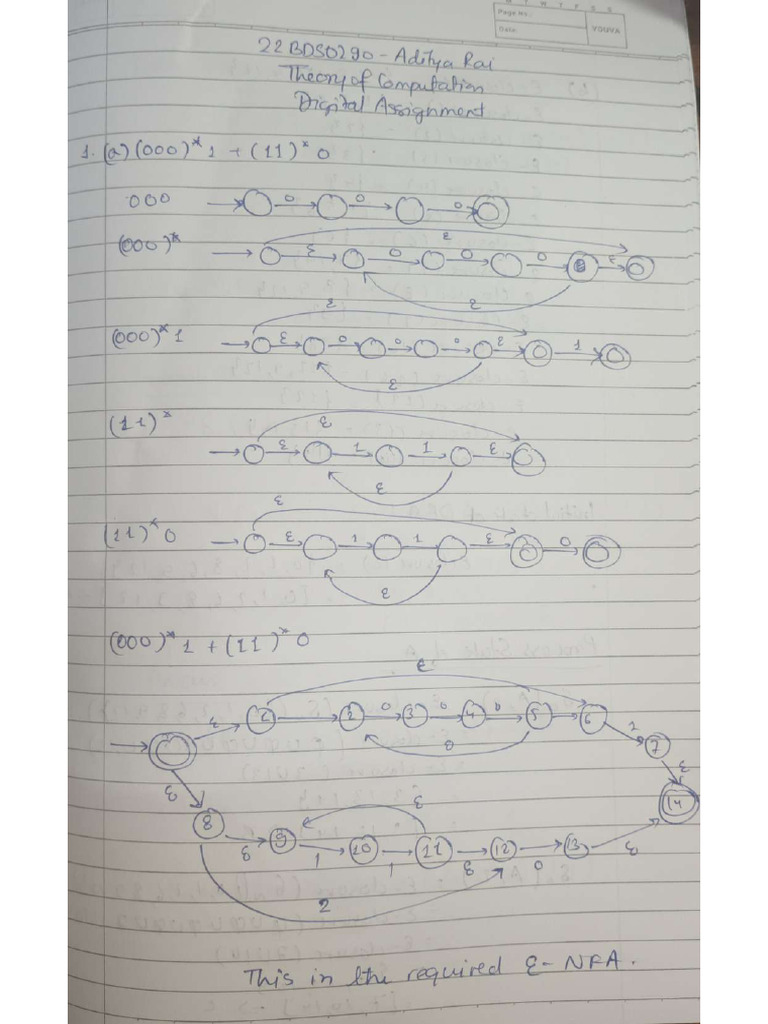 Page No.
Date
YOUVA
22BDS0290 - Aditya Rai
Theory of Computation
Digital Assignment
1. (a) (000)* 1 + (11)* 0
000 0 0 0
(000)* ε ε 0 0 0 ε ε
(000)* 1 ε ε 0 0 0 ε 1 ε
(11)* ε ε 1 1 ε ε
(11)* 0 ε ε 1 1 ε 0 ε
(000)* 1 + (11)* 0
ε
ε 2 0 3 0 4 0 5 6 1 7
0 ε
ε 8 ε 14
ε 9 1 10 1 11 ε 12 0 13 ε
2
This in the required ε- NFA.